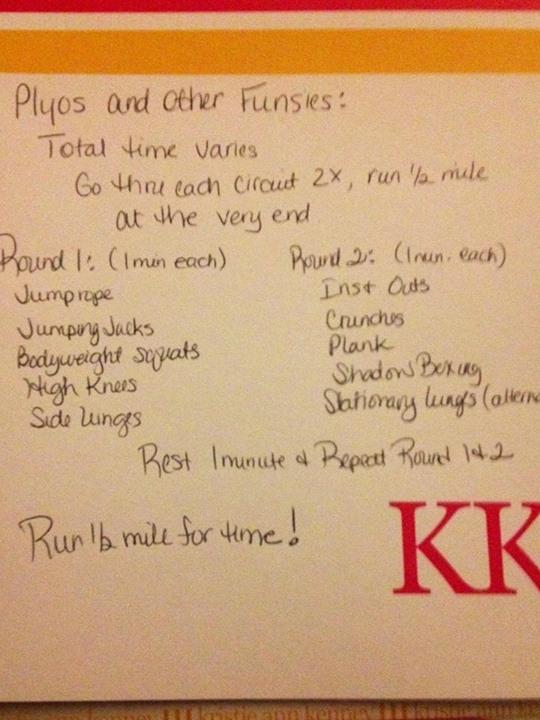 Plyos and other Funsies:
Total time varies
Go thru each circuit 2x, run 1/2 mile
at the very end
Round 1: (1 min each)
Jumprope
Jumping Jacks
Bodyweight squats
High Knees
Side lunges
Round 2: (1 min. each)
Ins + Outs
Crunches
Plank
Shadow Boxing
Stationary lunges (altern
Rest 1 minute & Repeat Round 1 & 2
Run 1/2 mile for time!
KK
kristie ann kenney